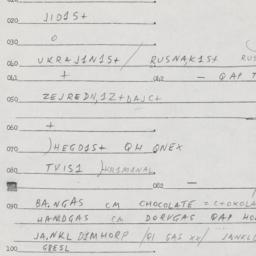 020
JID1S+
030
O
040 UKRAJ1N1S+ / RUSNAK1S+ RUS
041 + 042 — QAP T
050 ZEJREDN,1Z+DAJC+
060 +
070 )HEGD1S+ QH QNEX
TV1S1 )KR1M0NAL
080 082 —
090 BA,NGAS CM CHOCOLATE = COKOLA
HANDGAS CM DORVGAS QAP HO
JA,NKL D1MHORP /Q1 GAS XX/ JANKL
100 GRESL